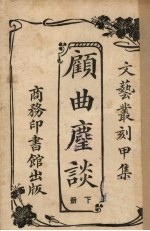 文藝叢刻甲集
顧曲塵談
下冊
商務印書館出版